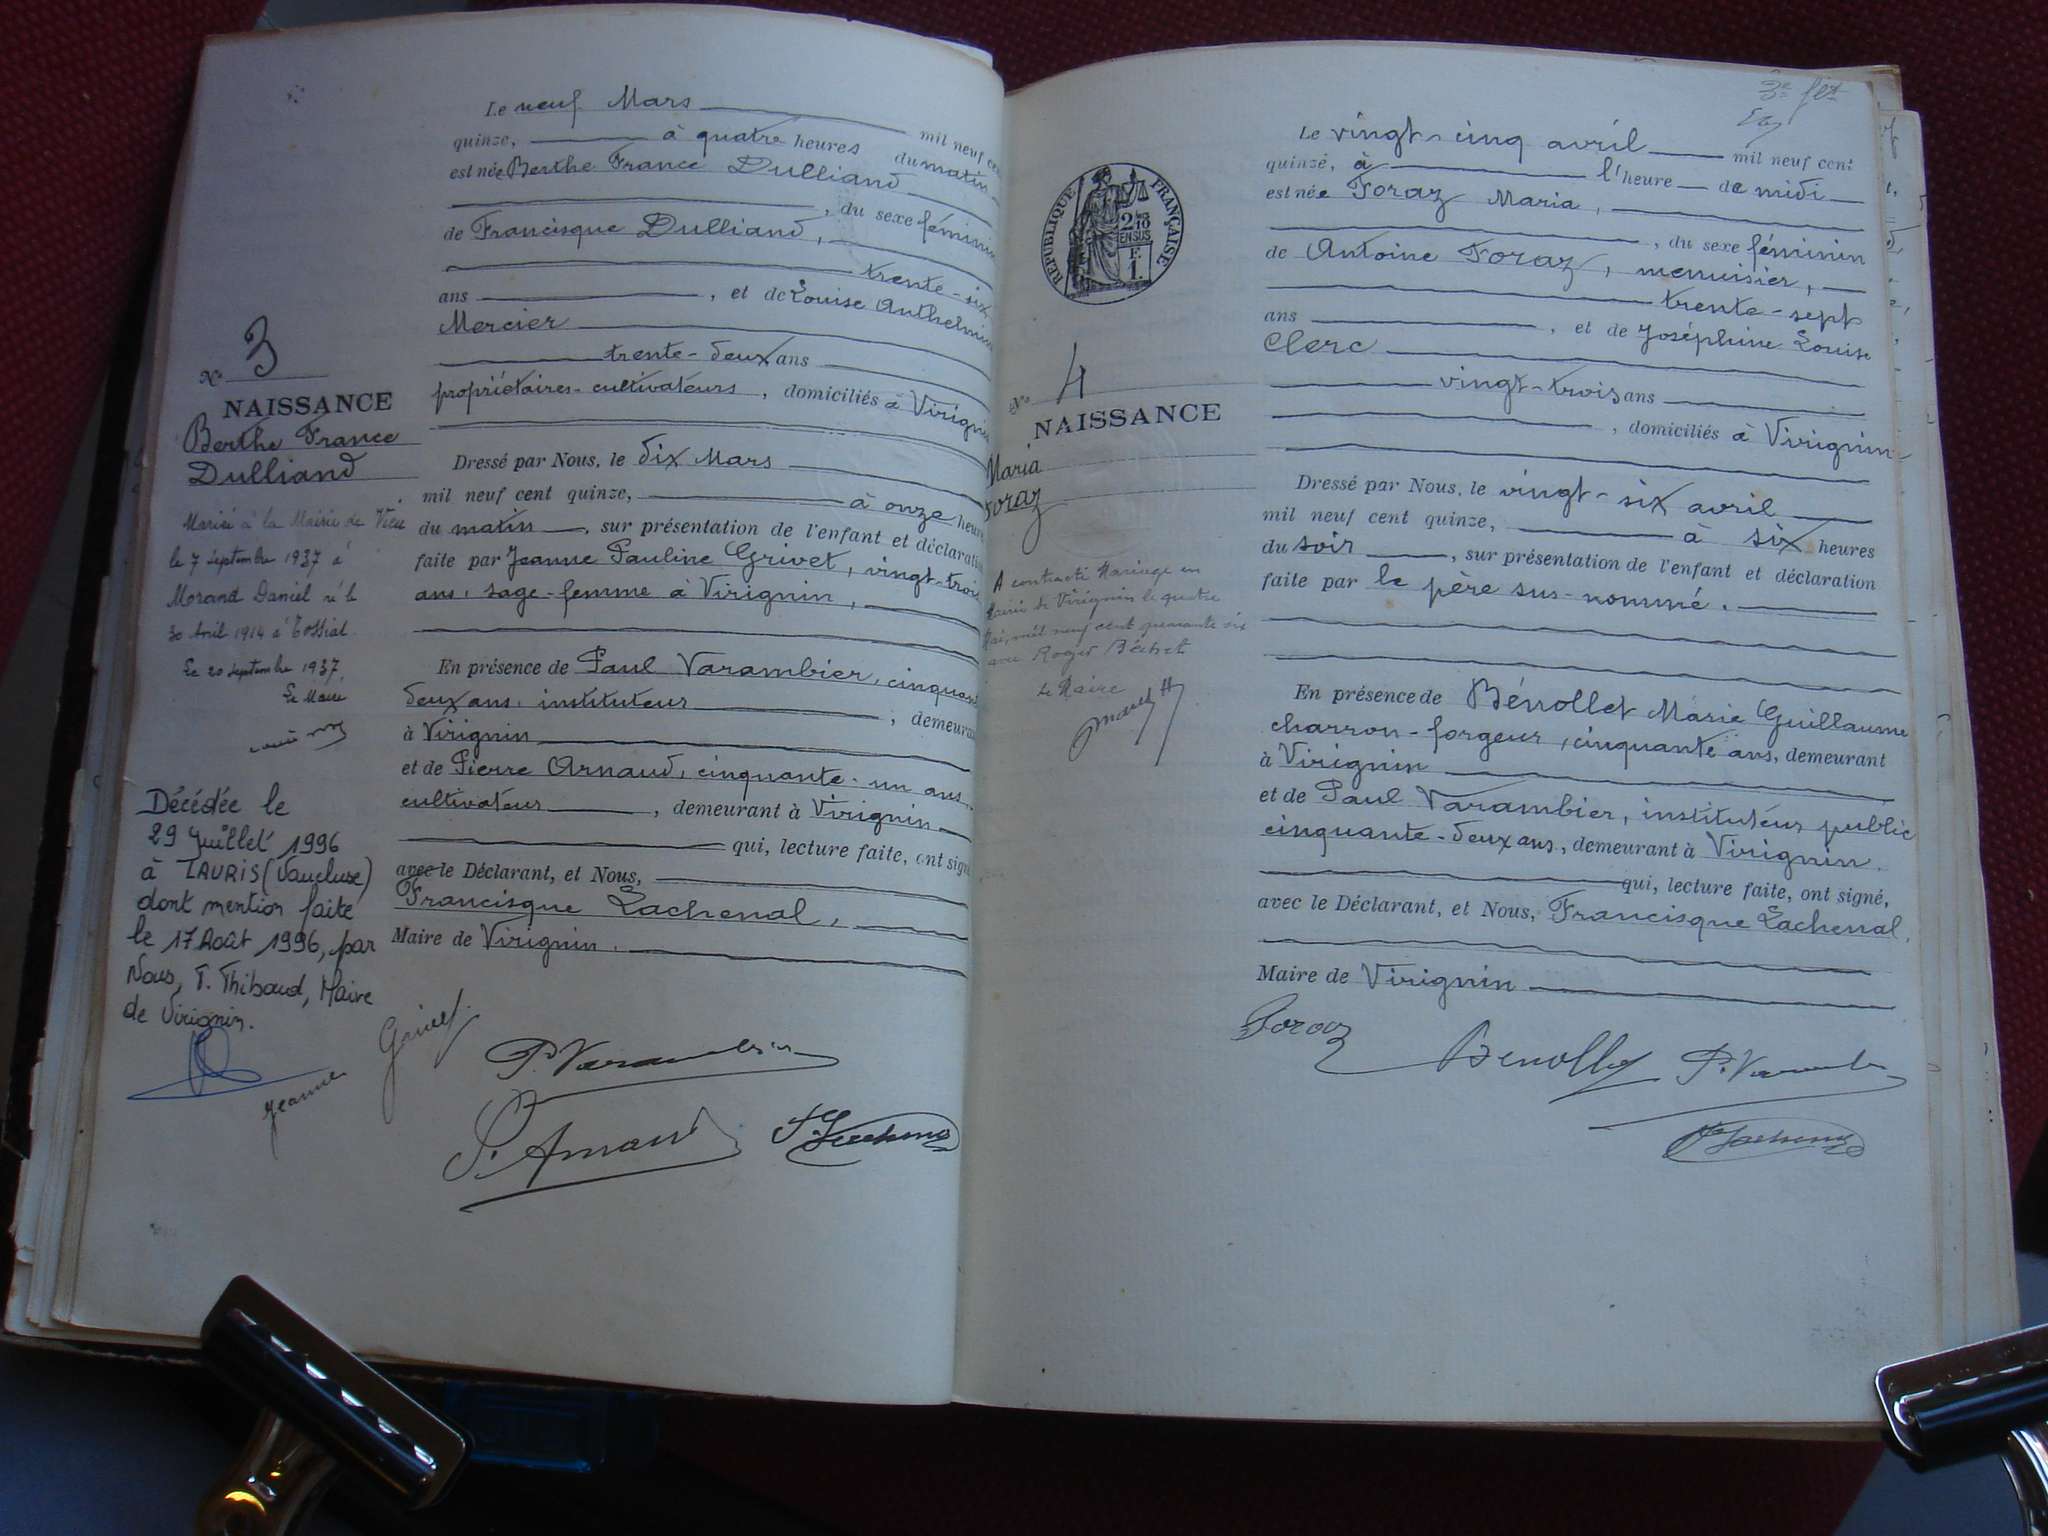 Le neuf Mars mil neuf cent
quinze, à quatre heures du matin
est née Berthe France Dulliand
, du sexe féminin
de Francisque Dulliand,
trente-six
ans , et de Louise Anthelmine
Mercier
trente-deux ans
propriétaires-cultivateurs, domiciliés à Virignin
N° 3
NAISSANCE
Berthe France
Dulliand
Mariée à la Mairie de Vieu
le 7 septembre 1937 à
Morand Daniel né le
30 Avril 1914 à
Le 20 septembre 1937,
Le Maire
Décédée le
29 Juillet 1996
à LAURIS (Vaucluse)
dont mention faite
le 17 Août 1996, par
Nous, T. Thibaud, Maire
de Virignin.
Dressé par Nous, le dix Mars
mil neuf cent quinze, à onze heures
du matin , sur présentation de l'enfant et déclaration
faite par Jeanne Pauline Grivet, vingt-trois
ans, sage-femme à Virignin,
En présence de Paul Varambier, cinquante
deux ans, instituteur , demeurant
à Virignin
et de Pierre Arnaud, cinquante-un ans,
cultivateur , demeurant à Virignin
qui, lecture faite, ont signé
avec le Déclarant, et Nous,
Francisque Lachenal,
Maire de Virignin.
Jeanne Grivet
P. Varambier
P. Arnaud
F. Lachenal
3e
RÉPUBLIQUE FRANÇAISE
2 10
EN SUS
F.
1.
Le vingt-cinq avril mil neuf cent
quinze, à l'heure de midi
est née Foraz Maria,
, du sexe féminin
de Antoine Foraz, menuisier,
trente-sept
ans , et de Joséphine Louise
Clerc
vingt-trois ans
, domiciliés à Virignin
N° 4
NAISSANCE
Maria
Foraz
A contracté Mariage en
Mairie de Virignin le quatre
Mai, mil neuf cent quarante six
avec Roger Béchet
Le Maire
Dressé par Nous, le vingt-six avril
mil neuf cent quinze, à six heures
du soir , sur présentation de l'enfant et déclaration
faite par le père sus-nommé.
En présence de Bénollet Marie Guillaume
charron-forgeur, cinquante ans, demeurant
à Virignin
et de Paul Varambier, instituteur public
cinquante-deux ans, demeurant à Virignin.
qui, lecture faite, ont signé,
avec le Déclarant, et Nous, Francisque Lachenal,
Maire de Virignin
Foraz
Benollet
P. Varambier
F. Lachenal